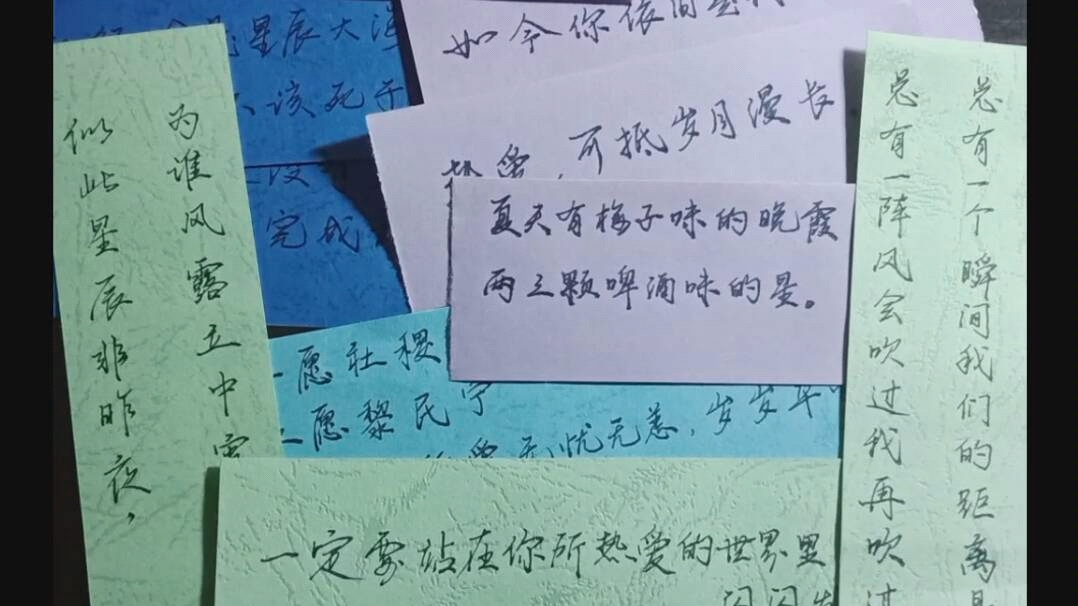 似此星辰非昨夜,
为谁风露立中
星辰大
该死于
没
完成
如今你依
热爱,可抵岁月漫长
夏天有梅子味的晚霞
两三颗啤酒味的星。
一愿社稷
二愿黎民宁
无忧无恙,岁岁年
一定要站在你所热爱的世界里
闪闪发
总有一个瞬间我们的距离是
总有一阵风会吹过我再吹过